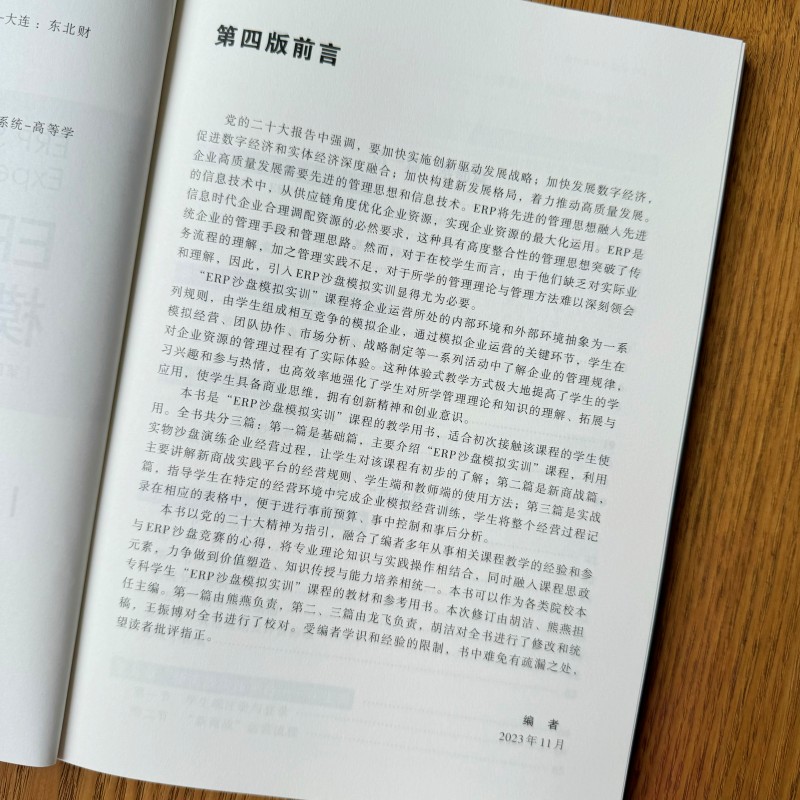 -大连：东北财
系统-高等学
第四版前言
党的二十大报告中强调，要加快实施创新驱动发展战略；加快发展数字经济，
促进数字经济和实体经济深度融合；加快构建新发展格局，着力推动高质量发展。
企业高质量发展需要先进的管理思想和信息技术。ERP将先进的管理思想融入先进
的信息技术中，从供应链角度优化企业资源，实现企业资源的最大化运用。ERP是
信息时代企业合理调配资源的必然要求，这种具有高度整合性的管理思想突破了传
统企业的管理手段和管理思路。然而，对于在校学生而言，由于他们缺乏对实际业
务流程的理解，加之管理实践不足，对于所学的管理理论与管理方法难以深刻领会
和理解，因此，引入ERP沙盘模拟实训显得尤为必要。
“ERP沙盘模拟实训”课程将企业运营所处的内部环境和外部环境抽象为一系
列规则，由学生组成相互竞争的模拟企业，通过模拟企业运营的关键环节，学生在
模拟经营、团队协作、市场分析、战略制定等一系列活动中了解企业的管理规律，
对企业资源的管理过程有了实际体验。这种体验式教学方式极大地提高了学生的学
习兴趣和参与热情，也高效率地强化了学生对所学管理理论和知识的理解、拓展与
应用，使学生具备商业思维，拥有创新精神和创业意识。
本书是“ERP沙盘模拟实训”课程的教学用书，适合初次接触该课程的学生使
用。全书共分三篇：第一篇是基础篇，主要介绍“ERP沙盘模拟实训”课程，利用
实物沙盘演练企业经营过程，让学生对该课程有初步的了解；第二篇是新商战篇，
主要讲解新商战实践平台的经营规则、学生端和教师端的使用方法；第三篇是实战
篇，指导学生在特定的经营环境中完成企业模拟经营训练，学生将整个经营过程记
录在相应的表格中，便于进行事前预算、事中控制和事后分析。
本书以党的二十大精神为指引，融合了编者多年从事相关课程教学的经验和参
与ERP沙盘竞赛的心得，将专业理论知识与实践操作相结合，同时融入课程思政
元素，力争做到价值塑造、知识传授与能力培养相统一。本书可以作为各类院校本
专科学生“ERP沙盘模拟实训”课程的教材和参考用书。本次修订由胡洁、熊燕担
任主编。第一篇由熊燕负责，第二、三篇由龙飞负责，胡洁对全书进行了修改和统
稿，王振博对全书进行了校对。受编者学识和经验的限制，书中难免有疏漏之处，
望读者批评指正。
编 者
2023年11月